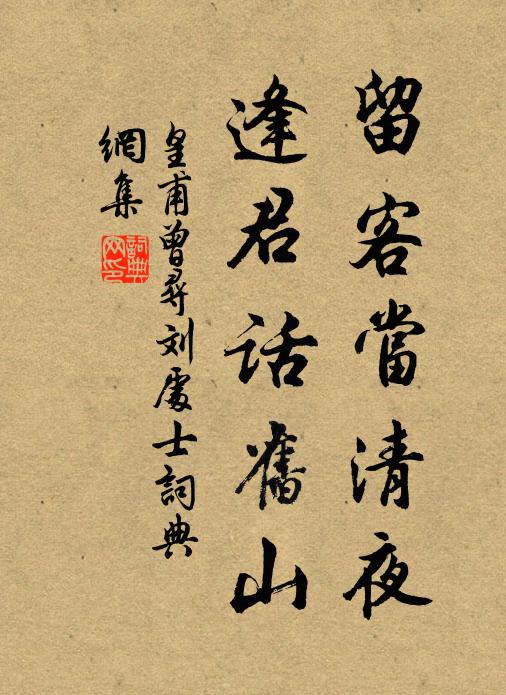 留客當清夜
逢君話舊山
皇甫曾尋刘處士詞典
網集
詞典网印